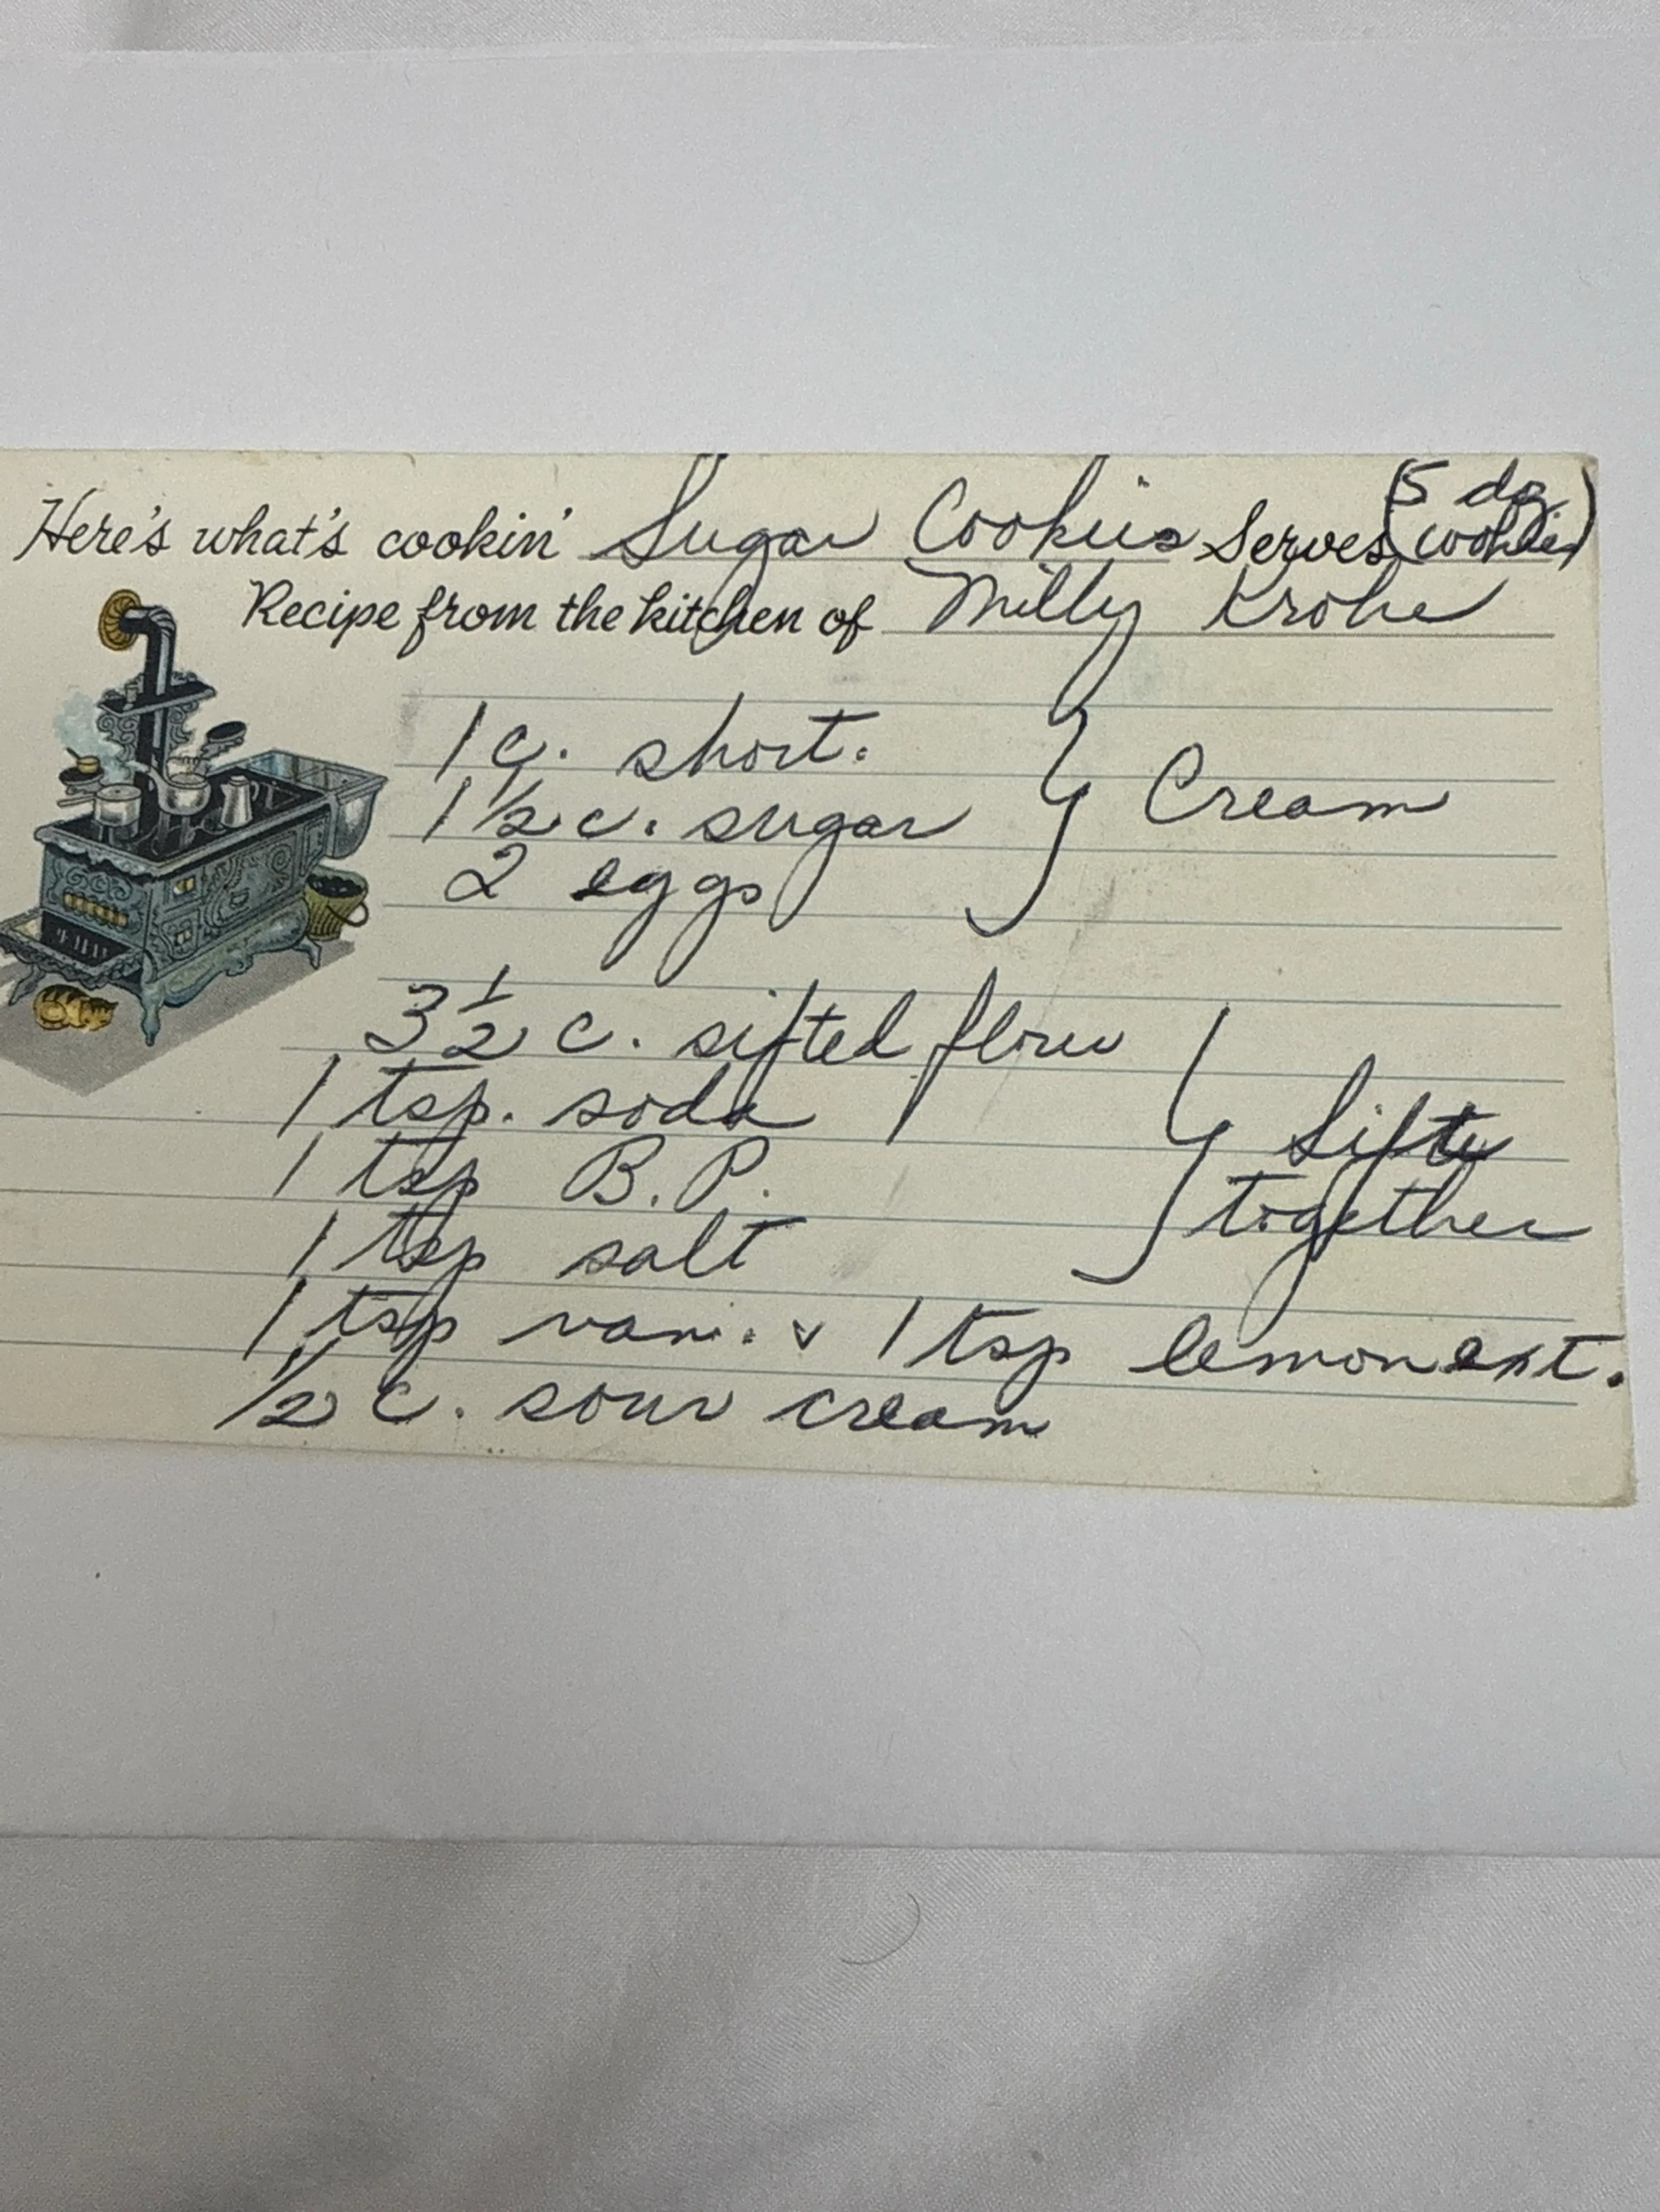 Here's what's cookin' Sugar Cookies Serves (5 dz cookies)
Recipe from the kitchen of Milly Krohe
1 c. short.
1 1/2 c. sugar } Cream
2 eggs
3 1/2 c. sifted flour
1 tsp. soda } Sift
1 tsp B.P. together
1 tsp salt
1 tsp van. v 1 tsp lemon ext.
1/2 c. sour cream